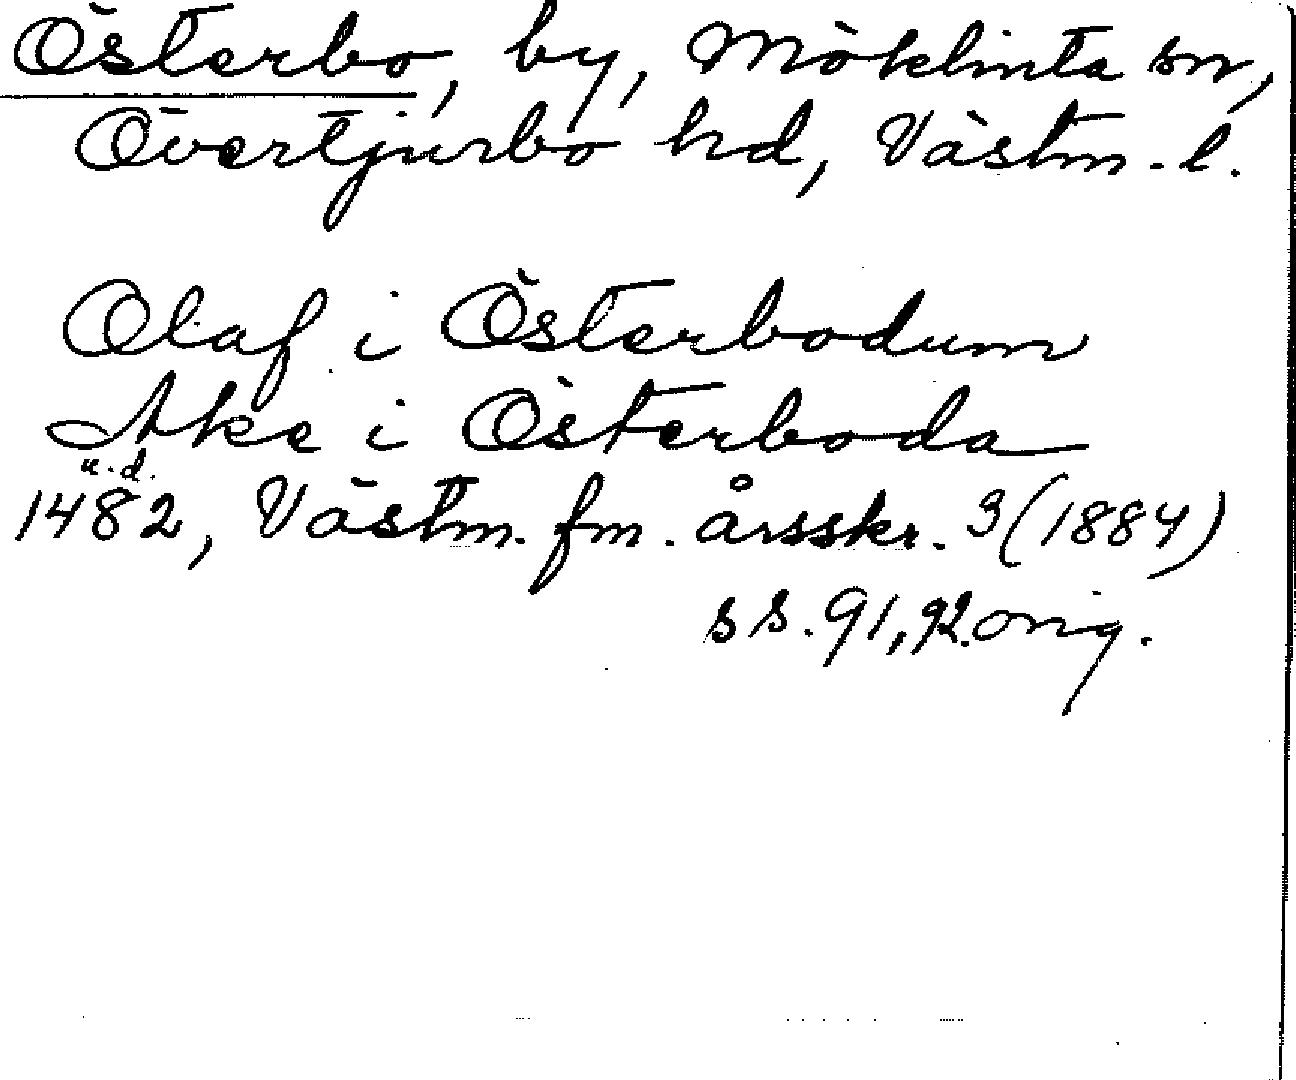 Österbo, by, Möklinta sn,
Övertjurbo hd, Västm. l.
Olaf i Österbodum
Ake i Österboda
u.d.
1482, Västm. fm. årsskr. 3 (1884)
s s. 91, 92. orig.